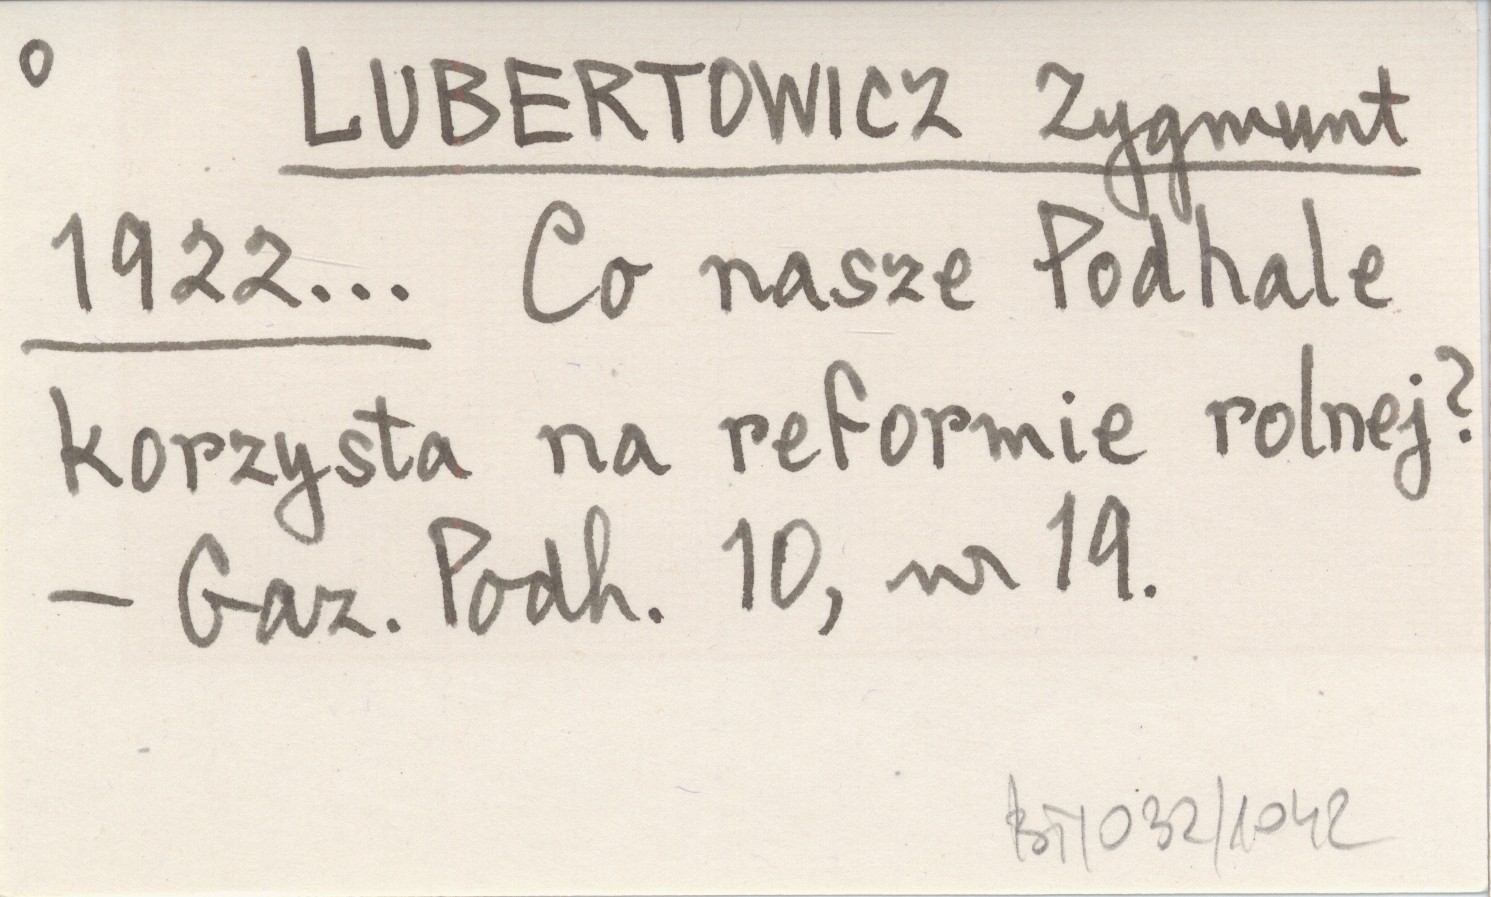 o LUBERTOWICZ Zygmunt
1922... Co nasze Podhale
korzysta na reformie rolnej?
— Gaz. Podh. 10, nr 19.
BT/032/1042